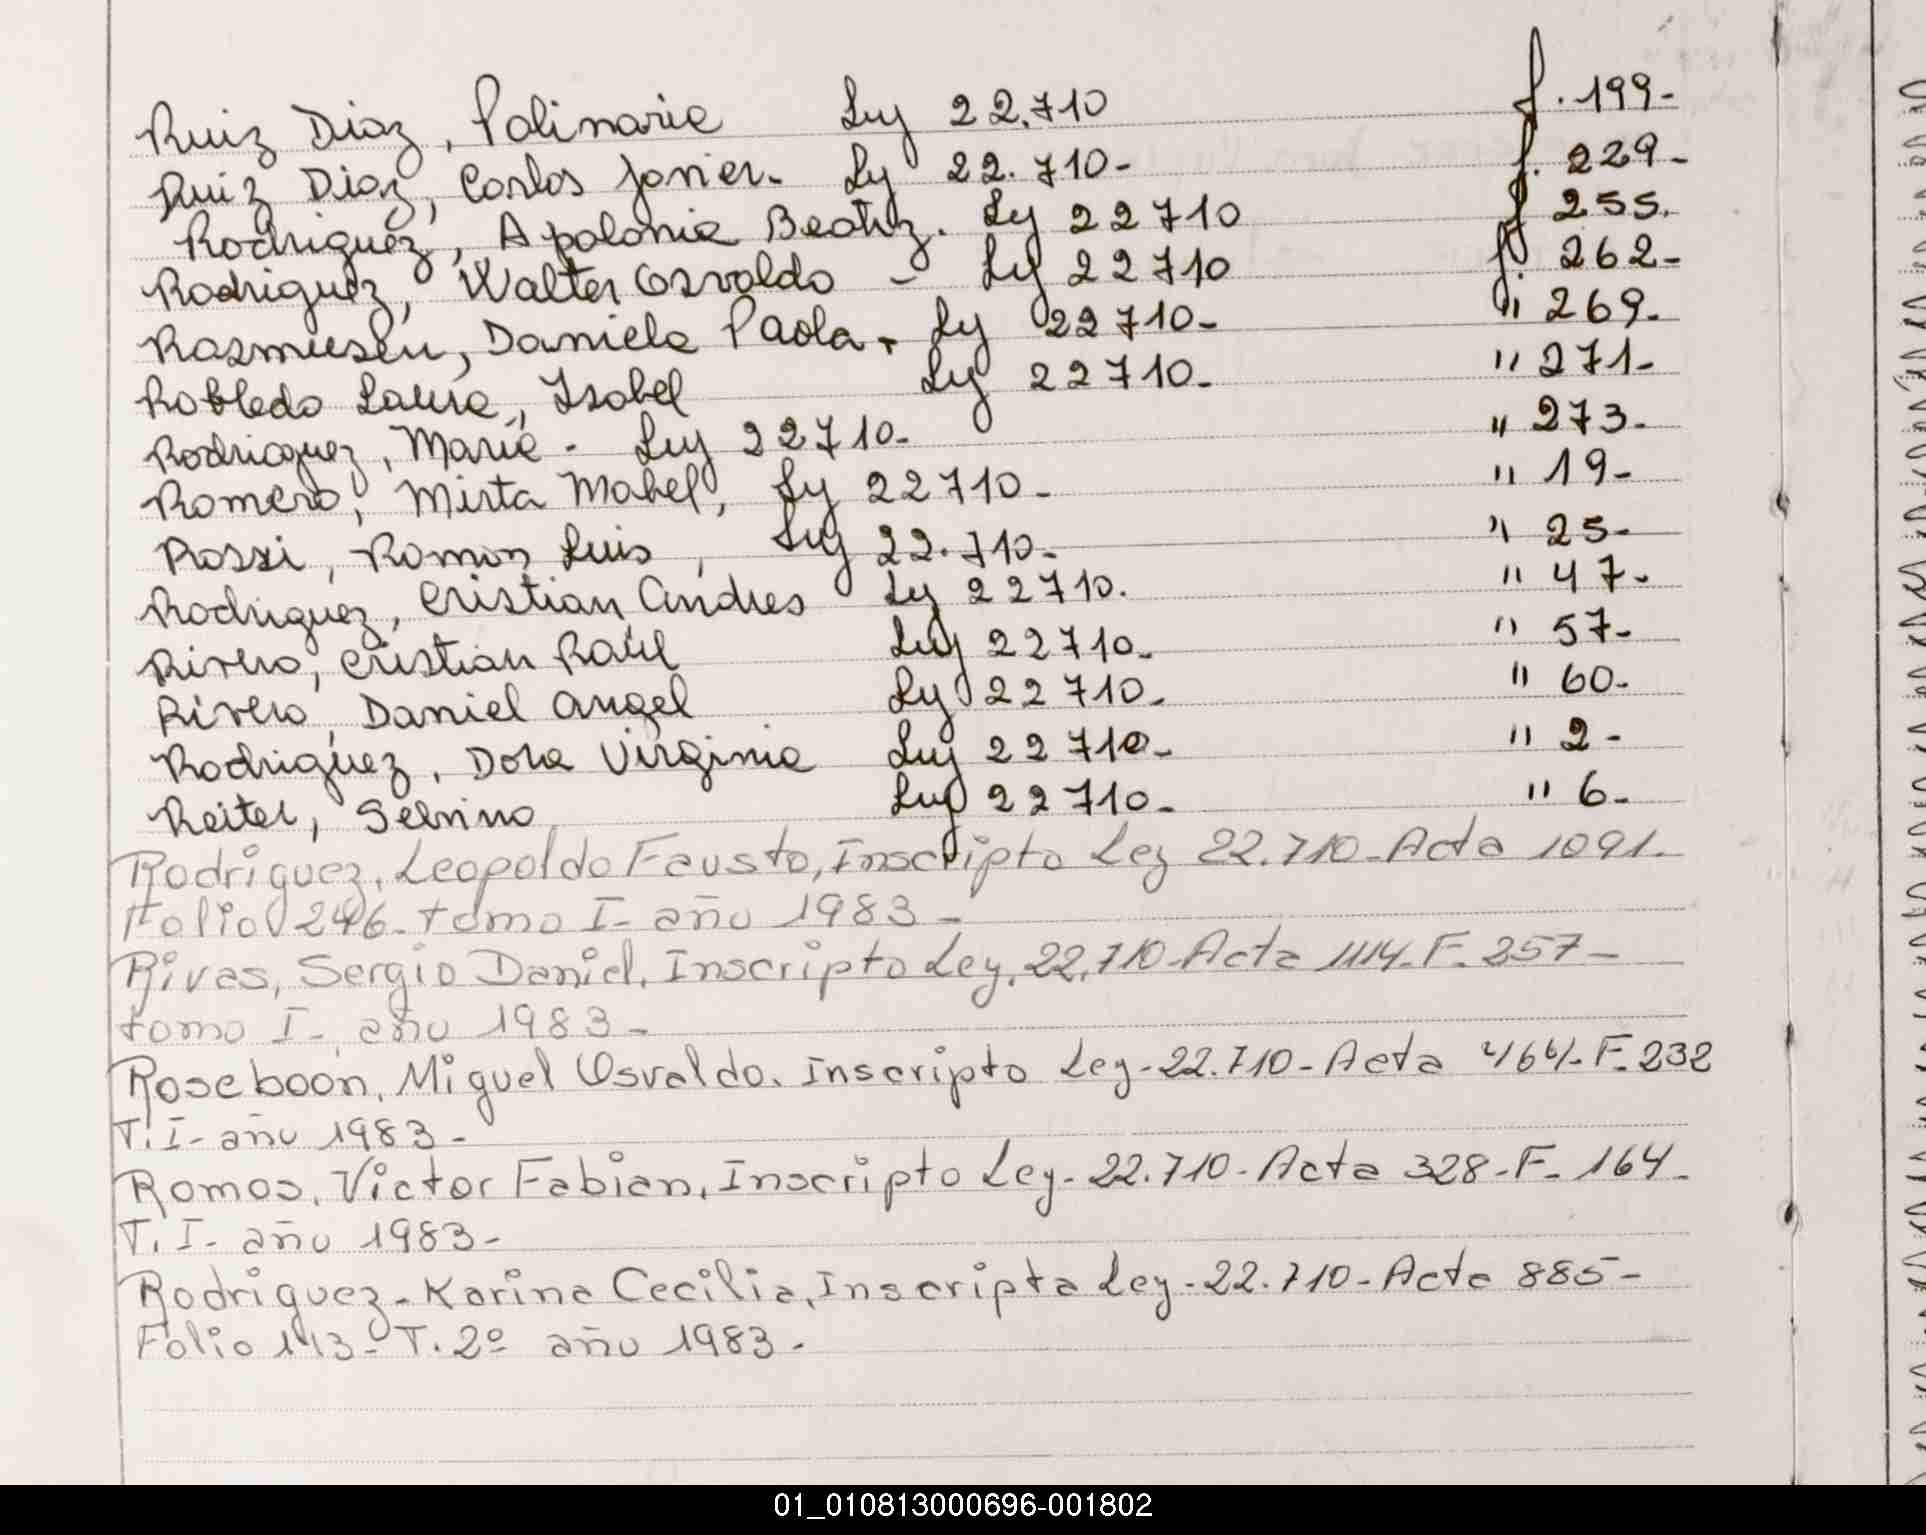 Ruiz Diaz, Polinaria Ley 22.710 f. 199-
Ruiz Diaz, Carlos Javier. Ley 22.710- f. 229-
Rodriguez, Apolonia Beatriz. Ley 22710 f 255.
Rodriguez, Walter Osvaldo - Ley 22710 f. 262-
Rasmusen, Daniela Paola. Ley 22710- " 269.
Robledo Laura, Isabel Ley 22710- " 271-
Rodriguez, Maria - Ley 22710- " 273-
Romero, Mirta Mabel, Ley 22710- " 19-
Rossi, Ramon Luis, Ley 22.710- " 25-
Rodriguez, Cristian Andres Ley 22710. " 47-
Rivero, Cristian Raúl Ley 22710- " 57-
Rivero, Daniel Angel Ley 22710- " 60-
Rodriguez, Dora Virginia Ley 22710- " 2-
Reiter, Ley 22710- " 6-
Rodriguez, Leopoldo Fausto, Inscripto Ley 22.710-Acta 1091-
Folio 246-tomo I- año 1983-
Rivas, Sergio Daniel, Inscripto Ley, 22.710-Acta 1114-F. 257-
tomo I-, año 1983-
Roseboon, Miguel Osvaldo. Inscripto Ley-22.710-Acta 464-F. 232
T. I- año 1983-
Ramos, Victor Fabian, Inscripto Ley-22.710-Acta 328-F- 164-
T. I- año 1983-
Rodriguez-Karina Cecilia, Inscripta Ley-22.710-Acta 885-
Folio 143- T. 2º año 1983-
01_010813000696-001802